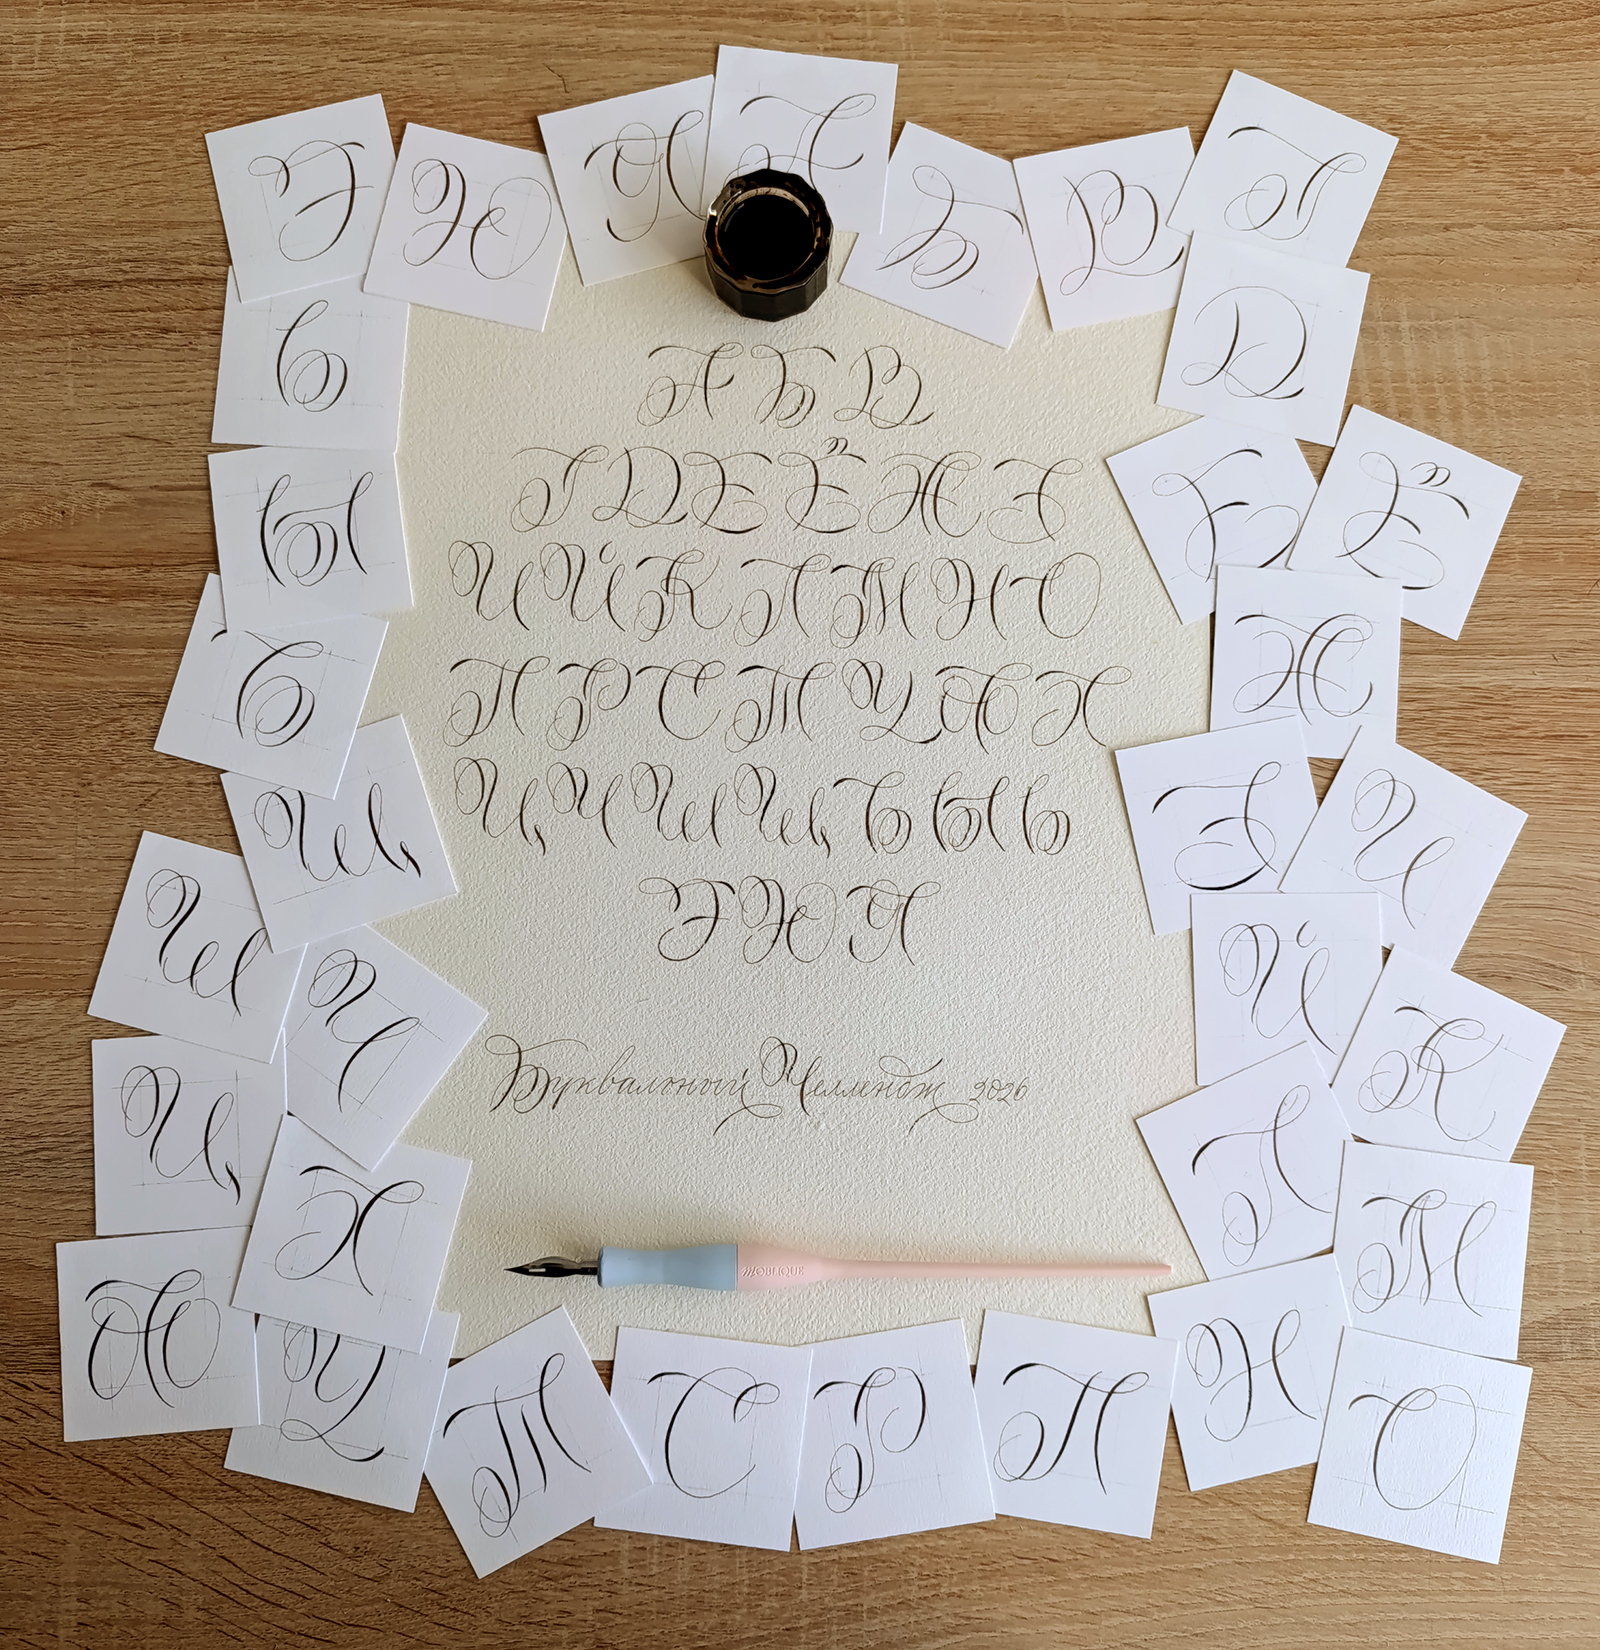 А Б В
Г Д Е Ё Ж З
И Й К Л М Н О
П Р С Т У Ф Х
Ц Ч Ш Щ Ъ Ы Ь
Э Ю Я
Буквальный Челлендж 2026
MOBLIQUE
А
Б
В
Г
Д
Е
Ё
Ж
З
И
Й
К
Л
М
Н
О
П
Р
С
Т
У
Ф
Х
Ц
Ч
Ш
Щ
Ъ
Ы
Ь
Э
Ю
Я